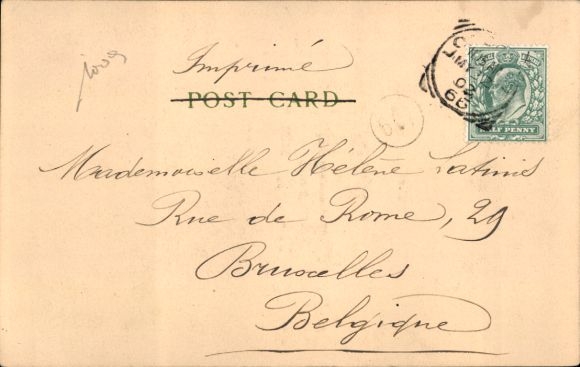 Imprimé
POST CARD
Mademoiselle Hélène Latinis
Rue de Rome, 29
Bruxelles
Belgique
HALF PENNY